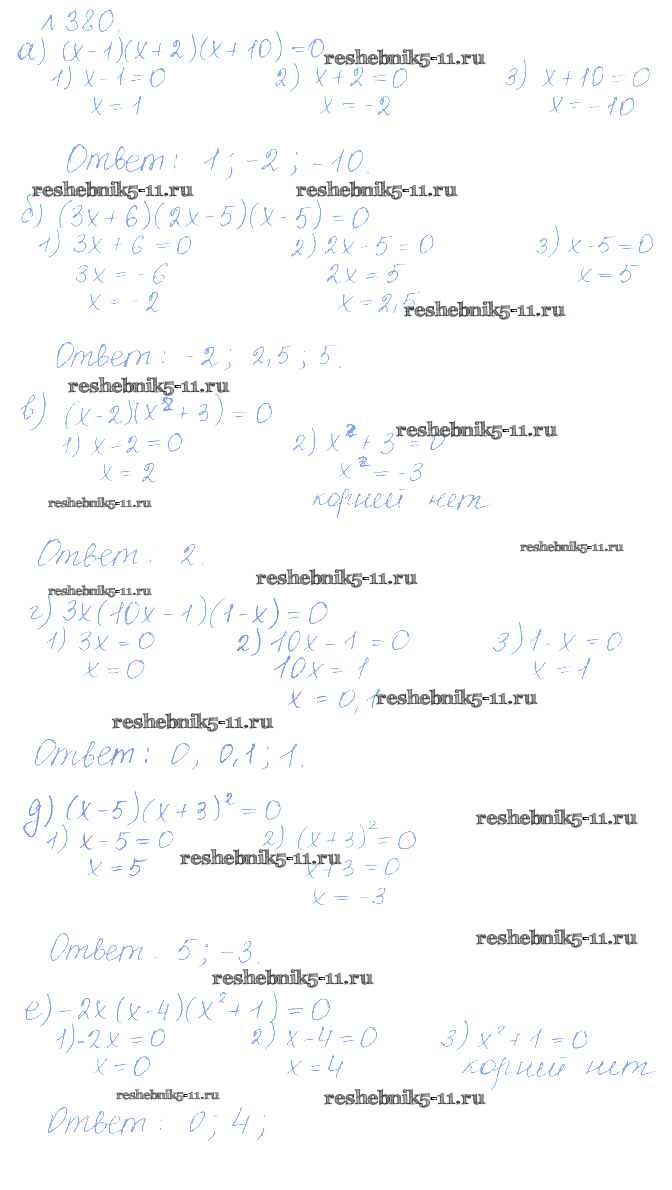 №380.
а) (x-1)(x+2)(x+10)=0 reshebnik5-11.ru
1) x-1=0 2) x+2=0 3) x+10=0
x=1 x=-2 x=-10
Ответ: 1; -2; -10.
reshebnik5-11.ru reshebnik5-11.ru
б) (3x+6)(2x-5)(x-5)=0
1) 3x+6=0 2) 2x-5=0 3) x-5=0
3x=-6 2x=5 x=5
x=-2 x=2,5 reshebnik5-11.ru
Ответ: -2; 2,5; 5.
reshebnik5-11.ru
в) (x-2)(x²+3)=0
1) x-2=0 2) x²+3=0 reshebnik5-11.ru
x=2 x²=-3
reshebnik5-11.ru корней нет
Ответ. 2. reshebnik5-11.ru
reshebnik5-11.ru
reshebnik5-11.ru
г) 3x(10x-1)(1-x)=0
1) 3x=0 2) 10x-1=0 3) 1-x=0
x=0 10x=1 x=1
x=0,1 reshebnik5-11.ru
reshebnik5-11.ru
Ответ: 0, 0,1; 1.
д) (x-5)(x+3)²=0 reshebnik5-11.ru
1) x-5=0 2) (x+3)²=0
x=5 reshebnik5-11.ru x+3=0
x=-3
Ответ. 5; -3. reshebnik5-11.ru
reshebnik5-11.ru
е) -2x(x-4)(x²+1)=0
1) -2x=0 2) x-4=0 3) x²+1=0
x=0 x=4 корней нет
reshebnik5-11.ru reshebnik5-11.ru
Ответ: 0; 4;